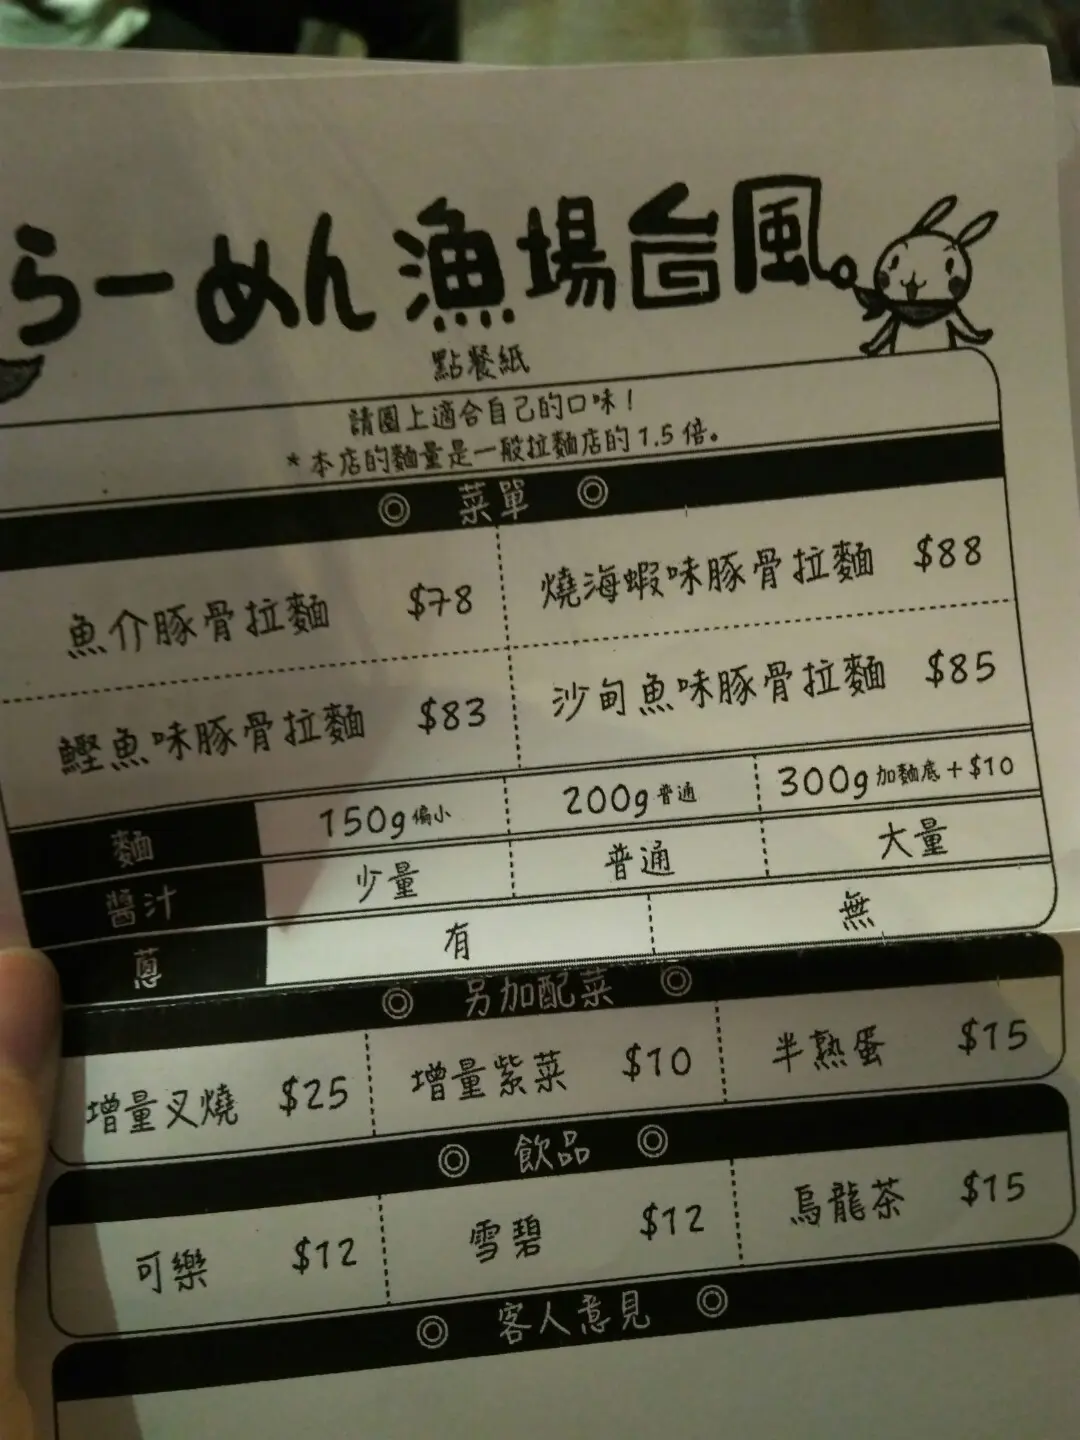 らーめん 漁場台風。
點餐紙
請圈上適合自己的口味！
*本店的麵量是一般拉麵店的1.5倍。
◎ 菜單 ◎
魚介豚骨拉麵 $78 燒海蝦味豚骨拉麵 $88
鰹魚味豚骨拉麵 $83 沙甸魚味豚骨拉麵 $85
麵 150g偏小 200g普通 300g加麵底+$10
醬汁 少量 普通 大量
蔥 有 無
◎ 另加配菜 ◎
增量叉燒 $25 增量紫菜 $10 半熟蛋 $15
◎ 飲品 ◎
可樂 $12 雪碧 $12 烏龍茶 $15
◎ 客人意見 ◎